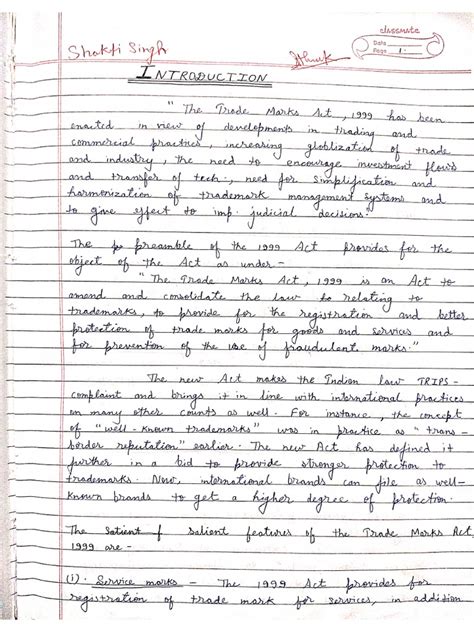 classmate
Date
Page 1
Shakti Singh
INTRODUCTION
"The Trade Marks Act, 1999 has been
enacted in view of developments in trading and
commercial practices, increasing globlization of trade
and industry, the need to encourage investment flows
and transfer of tech., need for simplification and
harmonization of trademark management systems and
to give effect to imp. judicial decisions."
The preamble of the 1999 Act provides for the
object of the Act as under -
"The Trade Marks Act, 1999 is an Act to
amend and consolidate the law relating to
trademarks, to provide for the registration and better
protection of trade marks for goods and services and
for prevention of the use of fraudulent marks."
The new Act makes the Indian law TRIPS-
complaint and brings it in line with international practices
on many other counts as well. For instance, the concept
of "well-known trademarks" was in practice as "trans-
border reputation" earlier. The new Act has defined it
further in a bid to provide stronger protection to
trademarks. Now, international brands can file as well-
known brands to get a higher degree of protection.
The salient features of the Trade Marks Act,
1999 are -
(i). Service marks - The 1999 Act provides for
registration of trade mark for services, in addition